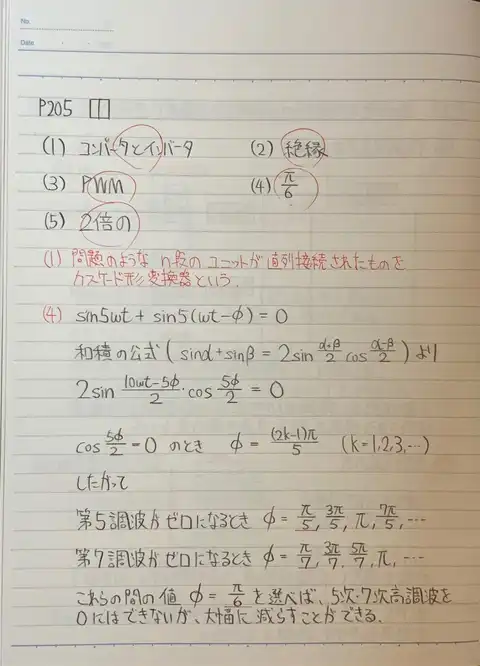 No.
Date
P205 □□
(1) コンバータとインバータ (2) 絶縁
(3) PWM (4) π/6
(5) 2倍の
(1) 問題のような n段の ユニットが 直列接続されたものを
カスケード形変換器という.
(4) sin5ωt + sin5(ωt-φ) = 0
和積の公式 ( sinα+sinβ = 2sin (α+β)/2 cos (α-β)/2 ) より
2sin (10ωt-5φ)/2 · cos 5φ/2 = 0
cos 5φ/2 = 0 のとき φ = (2k-1)π/5 (k=1,2,3,…)
したがって
第5調波がゼロになるとき φ = π/5, 3π/5, π, 7π/5, …
第7調波がゼロになるとき φ = π/7, 3π/7, 5π/7, π, …
これらの間の値 φ = π/6 を選べば、5次・7次高調波を
0にはできないが、大幅に減らすことができる.